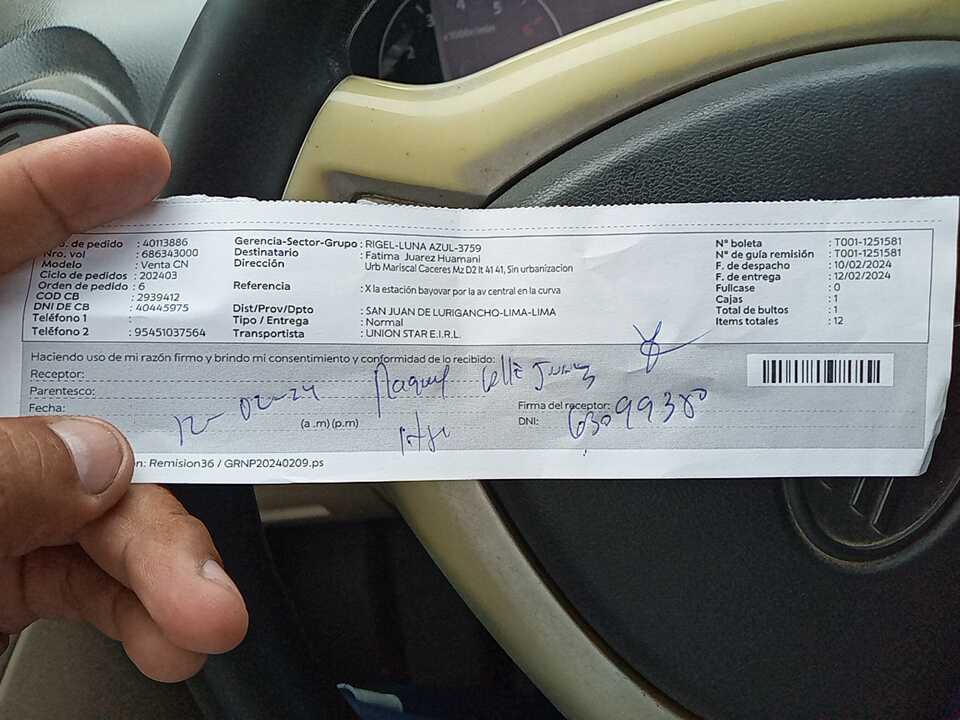 No. de pedido : 40113886
Nro. vol : 686343000
Modelo : Venta CN
Ciclo de pedidos : 202403
Orden de pedido : 6
COD CB : 2939412
DNI DE CB : 40445975
Teléfono 1 :
Teléfono 2 : 95451037564
Gerencia-Sector-Grupo : RIGEL-LUNA AZUL-3759
Destinatario : Fatima Juarez Huamani
Dirección Urb Mariscal Caceres Mz D2 lt 41 41, Sin urbanizacion
Referencia : X la estación bayovar por la av central en la curva
Dist/Prov/Dpto : SAN JUAN DE LURIGANCHO-LIMA-LIMA
Tipo / Entrega : Normal
Transportista : UNION STAR E.I.R.L.
N° boleta : T001-1251581
N° de guía remisión : T001-1251581
F. de despacho : 10/02/2024
F. de entrega : 12/02/2024
Fullcase : 0
Cajas : 1
Total de bultos : 1
Items totales : 12
Haciendo uso de mi razón firmo y brindo mi consentimiento y conformidad de lo recibido:
Receptor:
Parentesco:
Fecha: 12-02-24
(a .m) (p.m)
Firma del receptor:
DNI: 63099380
n: Remision36 / GRNP20240209.ps